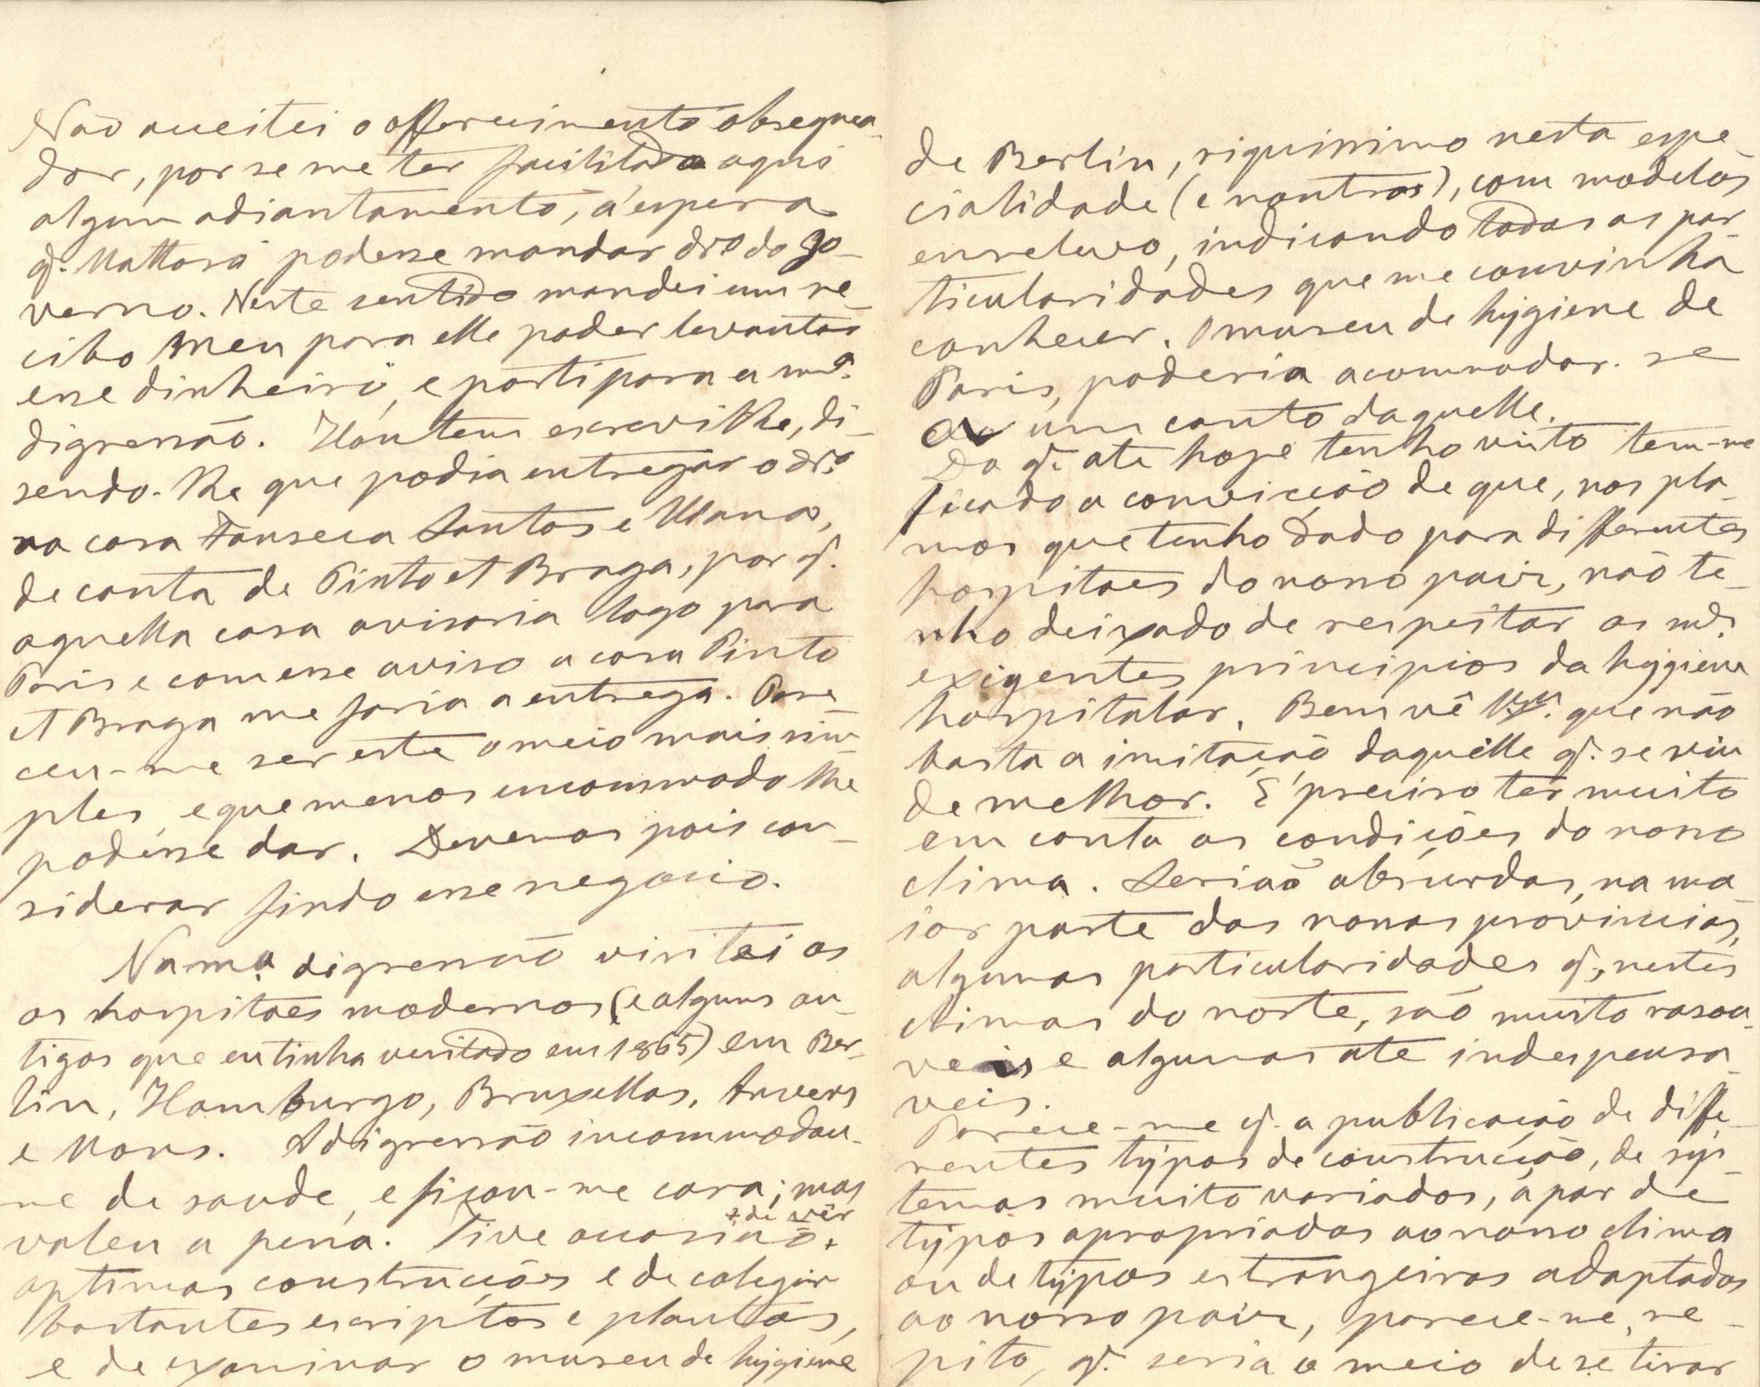 Não acceitei o offerecimento obsequea-
dor, por se me ter facilitado aqui
algum adiantamento, á espera
q. Mattoso podesse mandar dro do go-
verno. Neste sentido mandei um re-
cibo meu para elle poder levantar
esse dinheiro, e parti para a ma.
digressão. Hontem escrevi lhe, di-
sendo-lhe que podia entregar o dro.
na casa Fonseca Santos e Vianna,
de conta de Pinto et Braga, por q.
aquella casa avisaria logo para
Paris e com esse aviso a casa Pinto
et Braga me faria a entrega. Pare
ceu-me ser este o meio mais sim-
ples, e que menos incommodo lhe
podesse dar. Devemos pois con-
siderar findo esse negocio.
Na ma. digressão visitei os
os hospitaes modernos (e alguns an-
tigos que eu tinha vesitado em 1865) em Ber-
lin, Hamburgo, Bruxellas, Anvers
e Mons. A digressão incommodou-
me de saude, e ficou-me cara; mas
valeu a pena. Tive occasião + de vêr
optimas construcções e de coligir
bastantes escriptos e plantas,
e de examinar o museu de hygiene
de Berlin, riquissimo nesta espe-
cialidade (e noutras), com modelos
em relevo, indicando todas as par-
ticularidades que me convinha
conhecer. O museu de hygiene de
Paris, poderia accomodar-se
a um canto daquelle.
Do q. ate hoje tenho visto tem-me
ficado a convicção de que, nos pla-
nos que tenho dado para differentes
hospitaes do nosso paiz, não te-
nho deixado de respeitar os ms.
exigentes principios da hygiene
hospitalar. Bem vê que não
basta a imitação daquelle q. se viu
de melhor. É preciso ter muito
em conta as condições do nosso
clima. Serião absurdas, na ma
ior parte das nossas provincias,
algumas particularidades q., nestes
climas do norte, são muito rasoa-
veis e algumas ate indespensa-
veis.
Parece-me q. a publicação de diffe-
rentes typos de construcção, de sys-
temas muito variados, a par de
typos apropriados ao nosso clima
ou de typos estrangeiros adaptados
ao nosso paiz, parece-me, re-
pito, q. seria o meio de se tirar